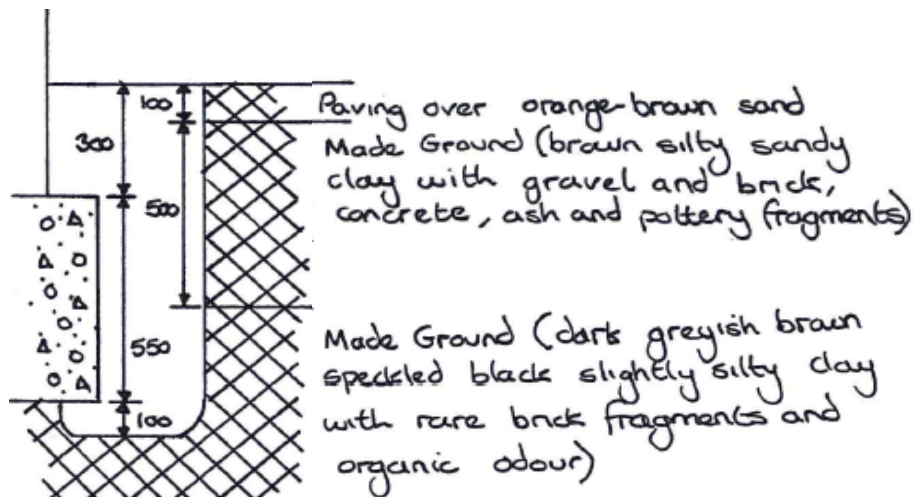 100
Paving over orange-brown sand
300
Made Ground (brown silty sandy
clay with gravel and brick,
500
concrete, ash and pottery fragments)
550
Made Ground (dark greyish brown
speckled black slightly silty clay
100
with rare brick fragments and
organic odour)